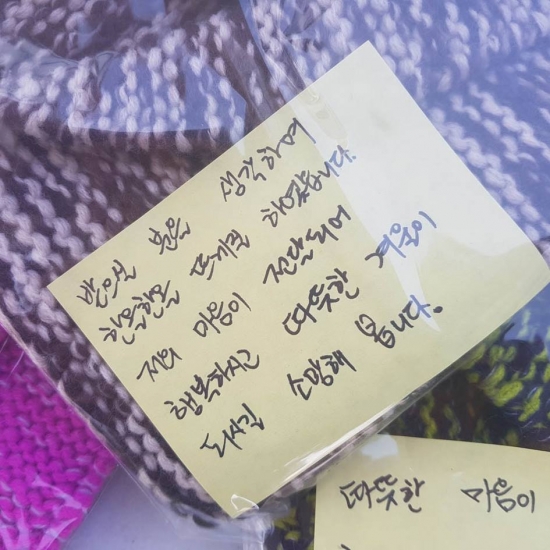 받으실 분을 생각하며
한올한올 뜨개질 하였습니다.
저의 마음이 전달되어
행복하시고 따뜻한 겨울이
되시길 소망해 봅니다.
따뜻한 마음이